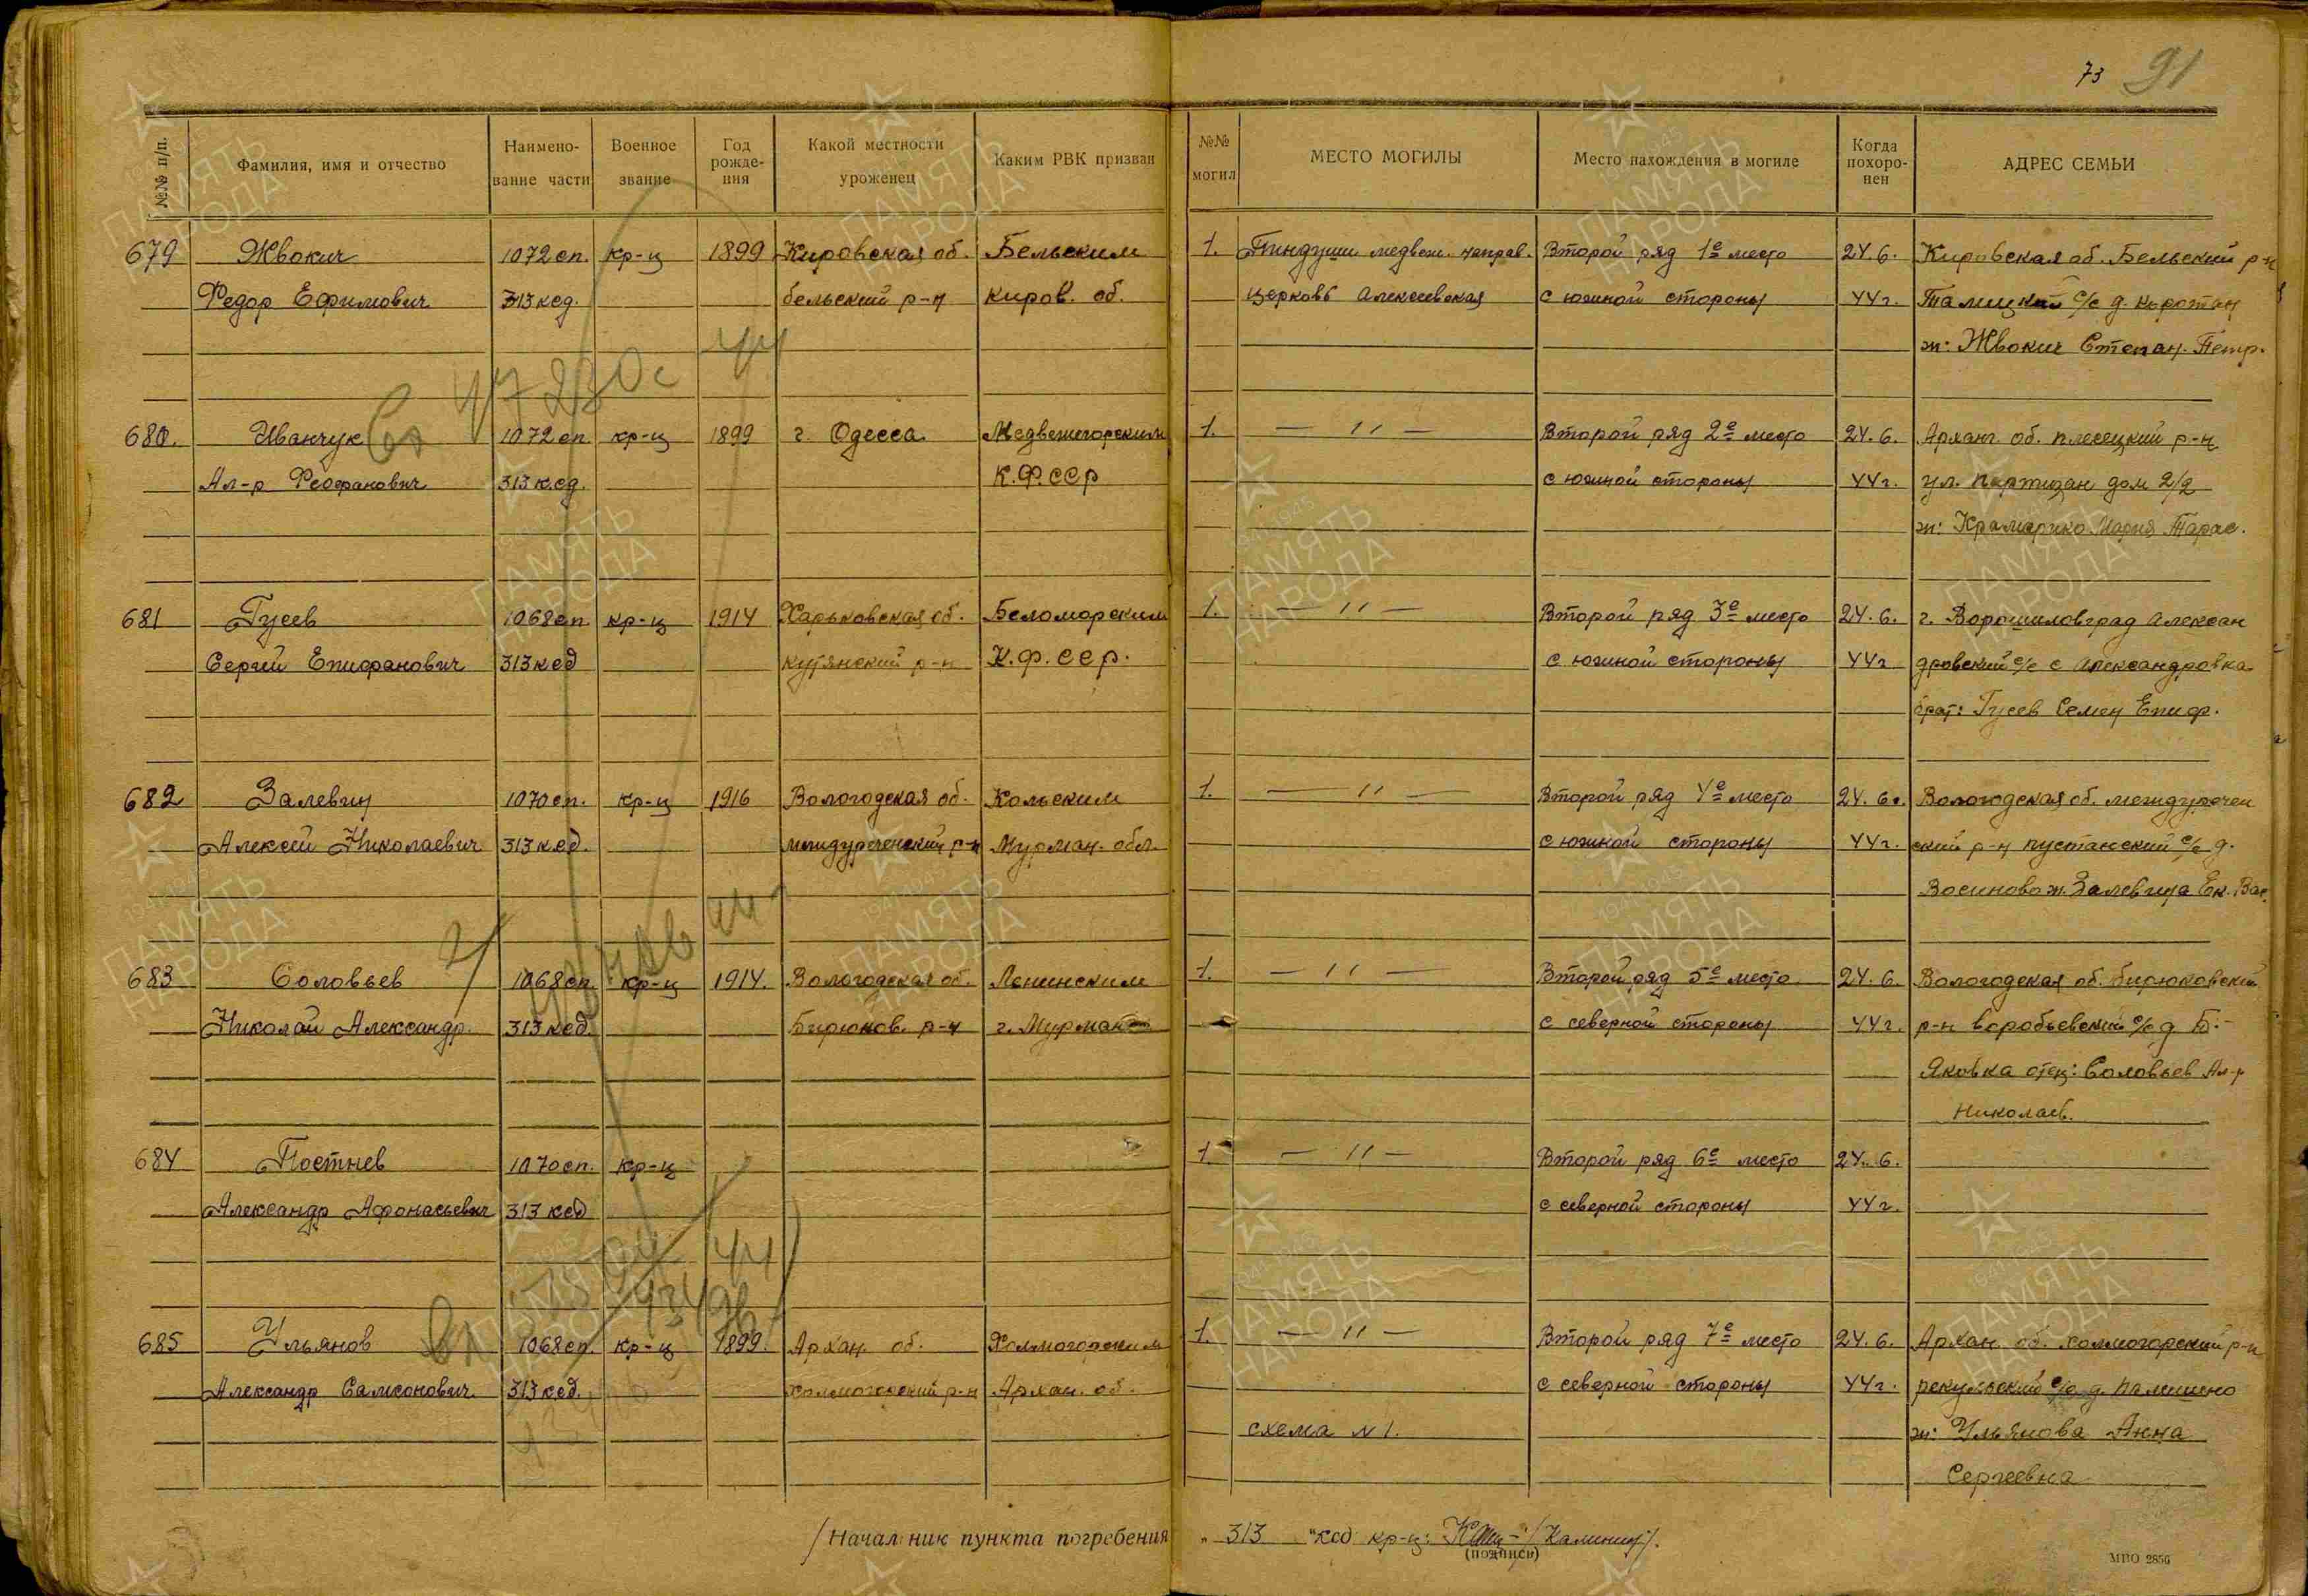 73 91
№№ п/п.
Фамилия, имя и отчество
Наимено-
вание части
Военное
звание
Год
рожде-
ния
Какой местности
уроженец
Каким РВК призван
№№
могил
МЕСТО МОГИЛЫ
Место нахождения в могиле
Когда
похоро-
нен
АДРЕС СЕМЬИ
679 Жвокич 1072 сп. кр-ц 1899 Кировская об. Бельским 1. Пиндуши медвеж. направ. Второй ряд 1е место 24.6. Кировская об. Бельский р-н
Федор Ефимович 313 ксд. бельский р-н Киров. об. церковь Алексеевская с южной стороны 44г. Талицкий с/с д.
ж: Жвокич Степан. Петр.
47230с 44
680. Иванчук 1072 сп кр-ц 1899 г. Одесса Медвежегорским 1. — 〃 — Второй ряд 2е место 24.6. Арханг. об. плесецкий р-н
Ал-р Феофанович 313 к.сд. К.Ф.ССР с южной стороны 44г. ул. партизан дом 2/2
ж: Мария Тарас.
681 Гусев 1068 сп кр-ц 1914 Харьковская об. Беломорским 1. — 〃 — Второй ряд 3е место 24.6. г. Ворошиловград Алексан
Сергей Епифанович 313 ксд купянский р-н К.Ф.ССР. с южной стороны 44г дровский с/с с Александровка
брат: Гусев Семен Епиф.
682 Залевин 1070 сп. кр-ц 1916 Вологодская об. Кольским 1. — 〃 — Второй ряд 4е место 24.6. Вологодская об. междуречен
Алексей Николаевич 313 ксд. междуреченский р-н Мурман. обл. с южной стороны 44г. ский р-н пустанский с/с д.
Восиново ж. Залевина Ек. Вас.
683 Соловьев 1068 сп кр-ц 1914. Вологодская об. Ленинским 1. — 〃 — Второй ряд 5е место 24.6. Вологодская об. бирюковский
Николай Александр. 313 ксд. Бирюков. р-н г. Мурман с северной стороны 44г. р-н воробьевский с/с д Б.-
Яковка отец: Соловьев Ал-р
Николаев.
684 Постнев 1070 сп. кр-ц 1. — 〃 — Второй ряд 6е место 24.6.
Александр Афонасьевич 313 ксд с северной стороны 44г.
44
685 Ульянов 1068 сп. кр-ц 1899. Архан. об. Холмогорским 1. — 〃 — Второй ряд 7е место 24.6. Архан. об. холмогорский р-н
Александр Самсонович 313 ксд. холмогорский р-н Архан. об. с северной стороны 44г. рекульский с/с д. Палишино
схема N 1. ж: Ульянова Анна
Сергеевна
/Начальник пункта погребения „ 313 “ ксд кр-ц: /Калинин/.
(подпись)
МПО 2856
ПАМЯТЬ
НАРОДА
1941-1945